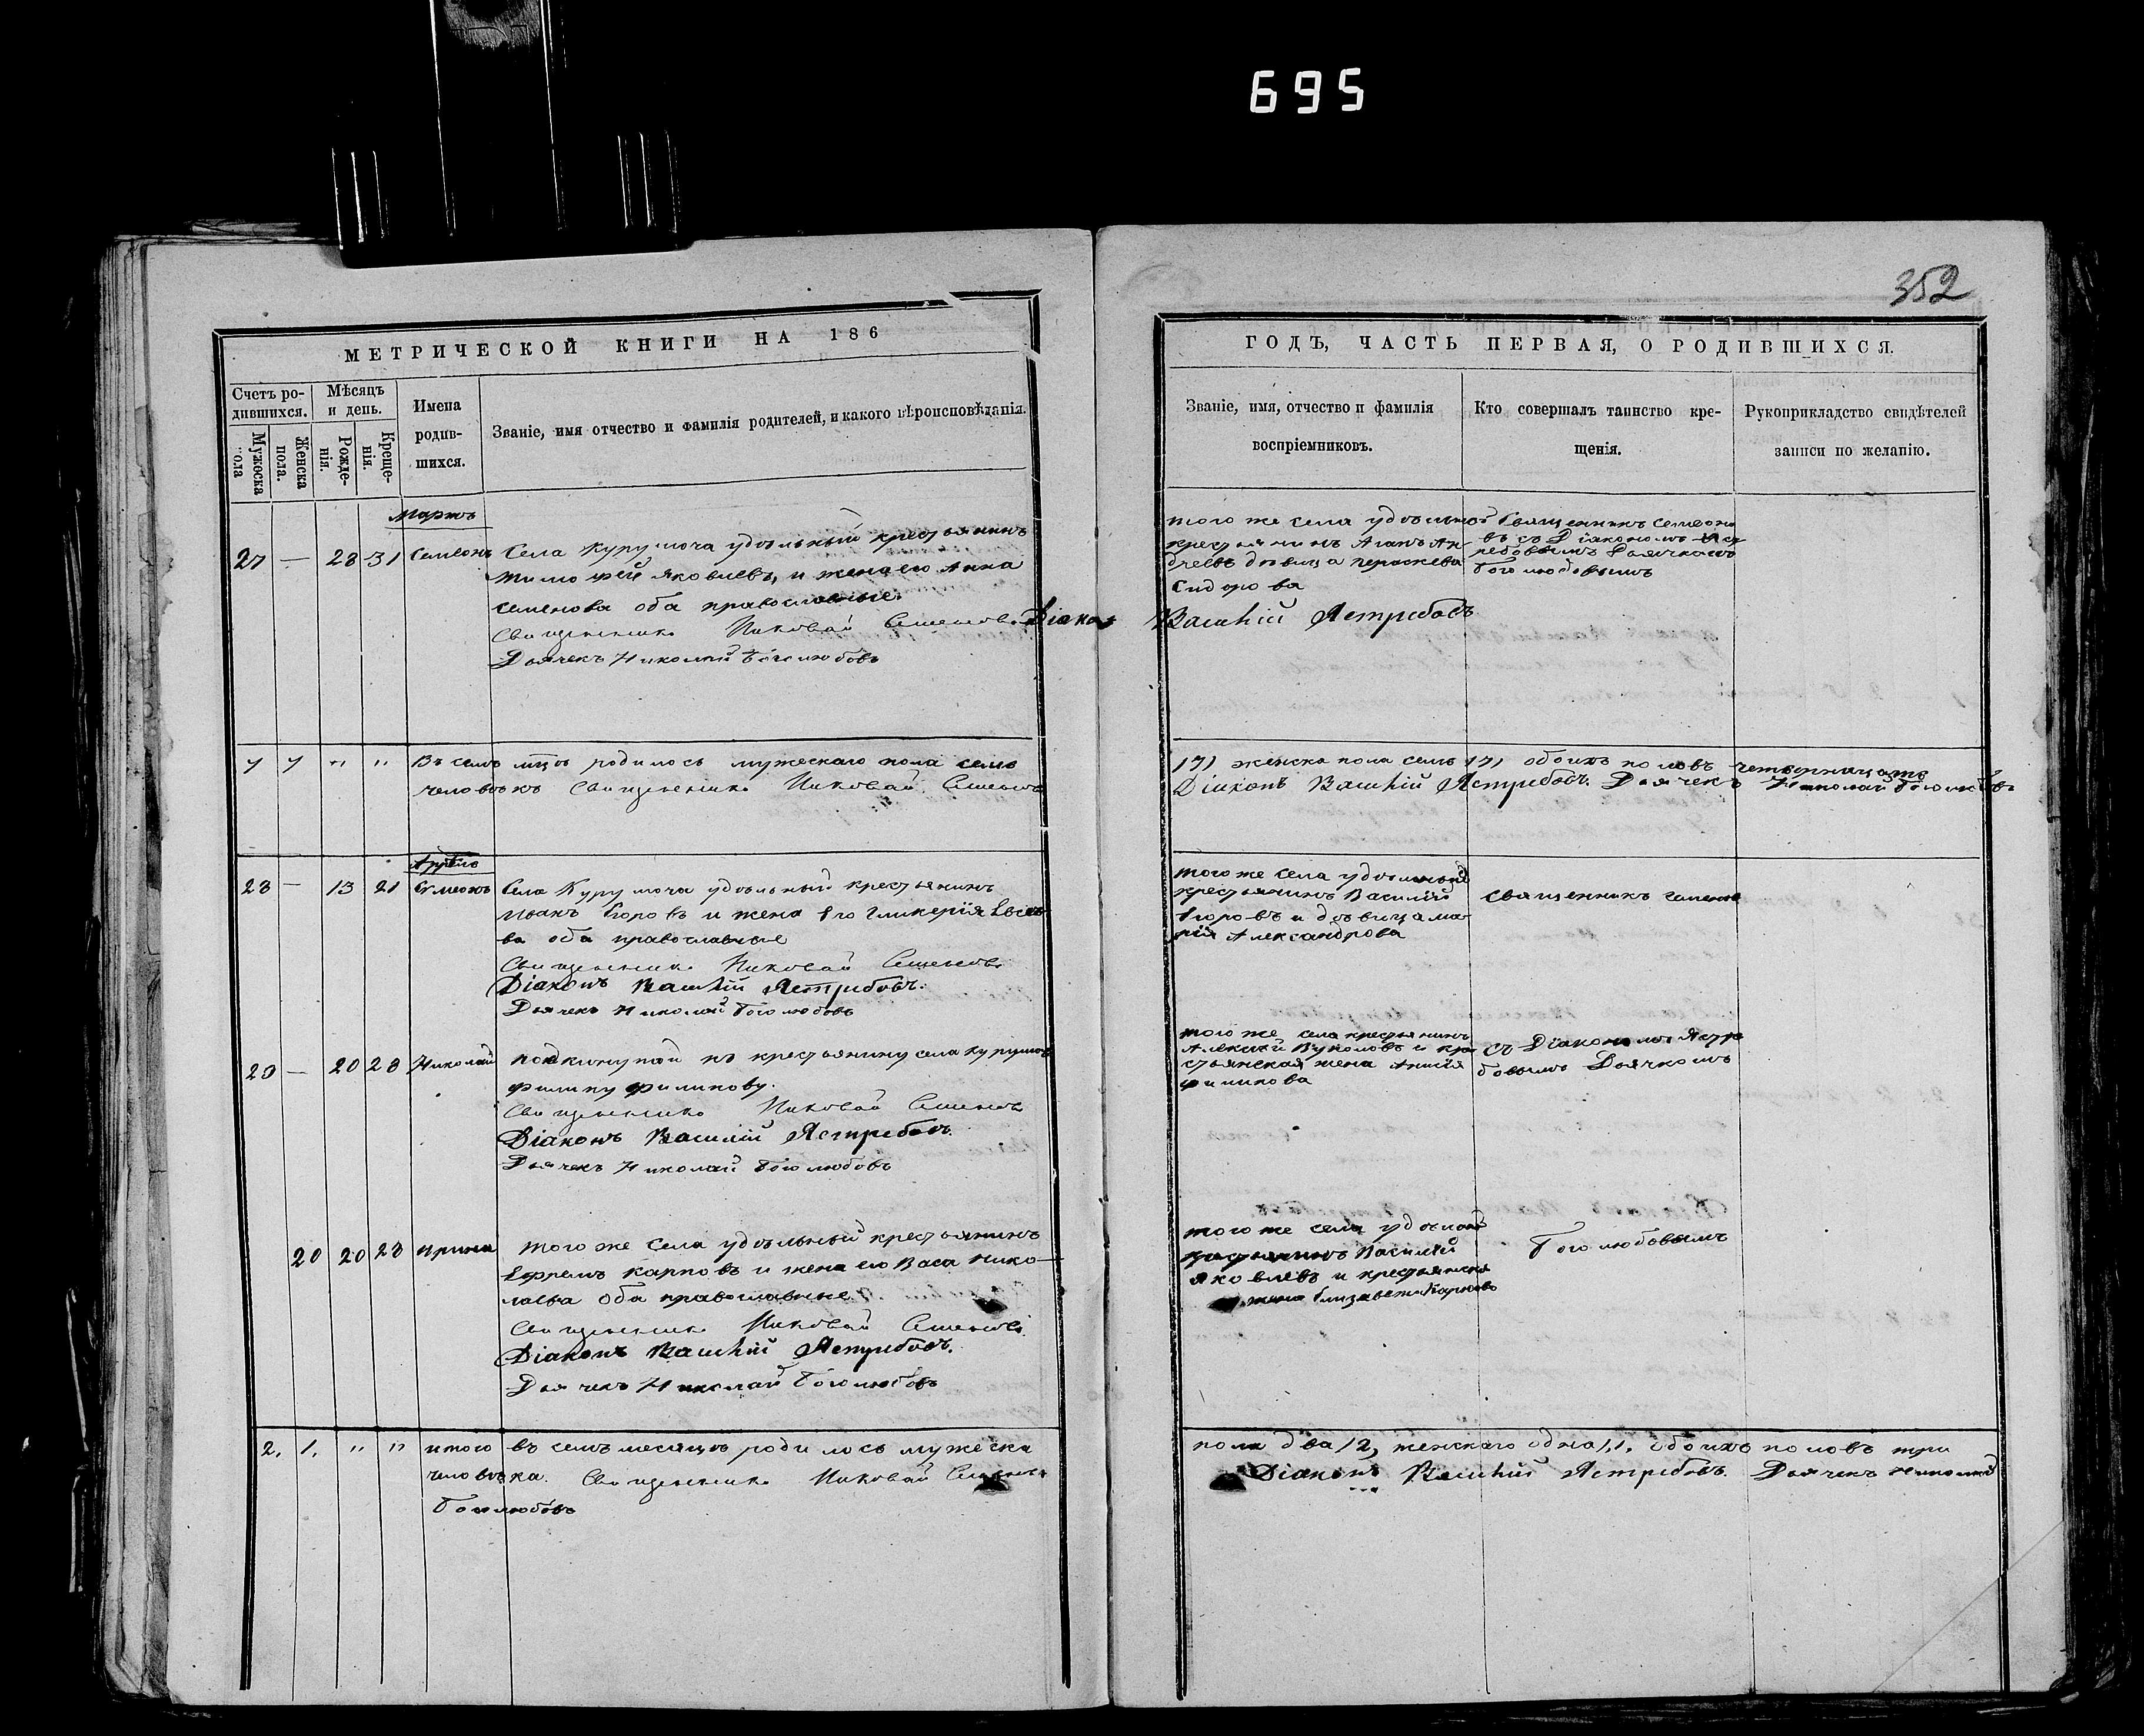 695
352
МЕТРИЧЕСКОЙ КНИГИ НА 186
Счетъ ро-
дившихся.
Мѣсяцъ
и день.
Мужеска
пола
Женска
пола.
Рожде-
нія.
Креще-
нія.
Имена
родив-
шихся.
Званіе, имя отчество и фамилія родителей, и какого вѣроисповѣданія.
ГОДЪ, ЧАСТЬ ПЕРВАЯ, О РОДИВШИХСЯ.
Званіе, имя, отчество и фамилія
воспріемниковъ.
Кто совершалъ таинство кре-
щенія.
Рукоприкладство свидѣтелей
записи по желанію.
Мартъ
27 — 28 31 Симеонъ Села Курумоча удѣльный крестьянинъ
Тимофей Яковлевъ, и жена его Анна
Семенова оба православные.
Священникъ Николай Семеновъ Діаконъ
Дьячекъ Николай Боголюбовъ
того же села удѣльной
крестьянинъ Ан-
дреевъ дѣвица
Сидорова
Василій Ястребовъ
Священникъ Семено-
въ съ Діакономъ Яст-
ребовымъ Дьячкомъ
Боголюбовымъ
7 7 " " Въ семъ мцѣ родилось мужескаго пола семь
человѣкъ Священникъ Николай Семеновъ
/7/ женска пола семь /7/ обоихъ половъ четырнадцать
Діаконъ Василій Ястребовъ. Дьячекъ Николай Боголюбовъ
Апрѣль
28 — 13 21 Симеонъ Села Курумоча удѣльный крестьянинъ
Иванъ Егоровъ и жена его Гликерія
ва оба православные
Священникъ Николай Семеновъ
Діаконъ Василій Ястребовъ.
Дьячекъ Николай Боголюбовъ
того же села удѣльный
крестьянинъ Василій
Егоровъ и дѣвица Ма-
рія Александрова
Священникъ Семенов
29 — 20 23 Николай подкинутой къ крестьянину села Курумоч
Филипу Филипову.
Священникъ Николай Семеновъ
Діаконъ Василій Ястребовъ.
Дьячекъ Николай Боголюбовъ
того же села крестьянинъ
Алексѣй и кре-
стьянская жена
Филипова
съ Діакономъ Ястре
бовымъ Дьячкомъ
20 20 23 Ирина Того же села удѣльный крестьянинъ
Ефремъ Карповъ и жена его Васа Нико-
лаева оба православные
Священникъ Николай Семеновъ
Діаконъ Василій Ястребовъ.
Дьячекъ Николай Боголюбовъ
того же села удѣльной
крестьянинъ Василій
Яковлевъ и крестьянска
жена Елизавета Карпова
Боголюбовымъ
2. 1. " " итого въ семъ месяцѣ родилось мужеска
человѣка. Священникъ Николай Семеновъ
Боголюбовъ
пола два /2, женскаго одна /1. обоихъ половъ три
Діаконъ Василій Ястребовъ. Дьячекъ Николай